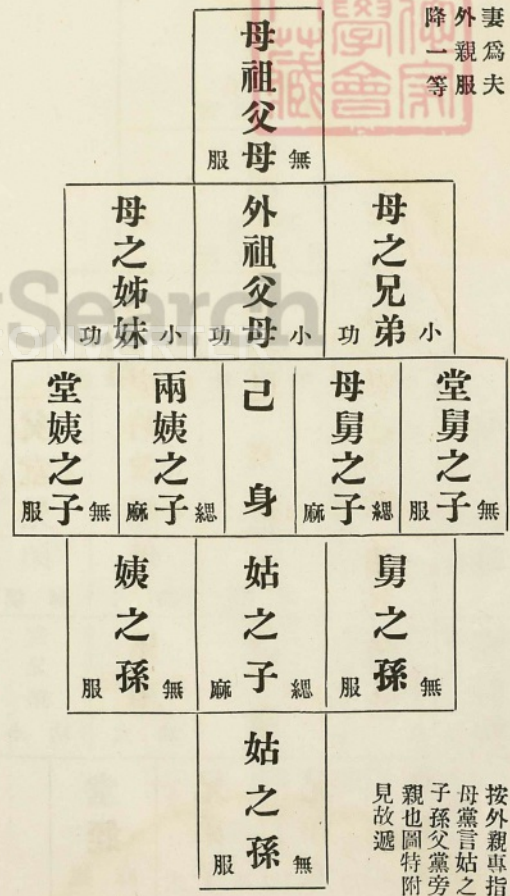 妻爲夫
外親服
降一等
母祖父母
無服
母之兄弟
小功
外祖父母
小功
母之姊妹
小功
堂舅之子
無服
母舅之子
緦麻
己身
兩姨之子
緦麻
堂姨之子
無服
舅之孫
無服
姑之子
緦麻
姨之孫
無服
姑之孫
無服
按外親專指
母黨言姑之
子孫父黨旁
親也圖特附
見故遞